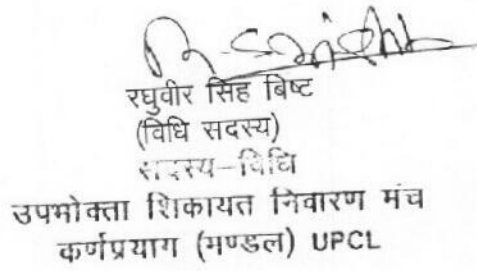 रघुवीर सिंह बिष्ट
(विधि सदस्य)
सदस्य-विधि
उपभोक्ता शिकायत निवारण मंच
कर्णप्रयाग (मण्डल) UPCL